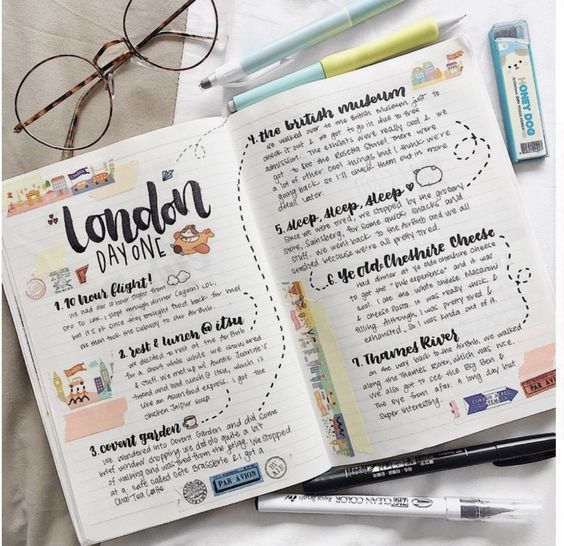 London
DAY ONE
1. 10 hour flight!
We had our 10 hour flight from
SFO to LHR. I slept through dinner (again) LOL,
but it's ok since they brought food back for me!
We then took the
to our AirBnb
2. rest & lunch @ itsu
We decided to rest at the AirBnb
for a short while. We showered
& stuff. We met up w/ Auntie Jeanne's
friend and had lunch @ itsu, which is
like an Asian food express. I got the
chicken
soup
3. covent garden
We wandered into Covent Garden and did some
brief window shopping. We did do quite a lot
of walking and was tired from the jetlag. We stopped
at a cafe called Cote Brasserie & I got a
Chai Tea Latte
PAR AVION
BY AIR
4. the british museum
We walked over to the British Museum just to
check it out & we got to go in due to free
admission. The exhibits were really cool & we
got to see the Rosetta Stone! There were
a lot of other cool things but I think we're
going back, so I'll check them out in more
detail later.
5. sleep, sleep, sleep
Since we were tired, we stopped by the grocery
store, Sainsberg, for some quick snacks and
stuff. We went back to the AirBnb and we all
crashed because we're all pretty tired.
6. Ye Old Cheshire Cheese
Had dinner at ye olde cheshire cheese
to get the "pub experience" and it was
cool. I ate the white cheese Macaroni
& cheese pasta. It was really thick &
filling. Although, I was pretty tired &
exhausted, so I was kinda out of it.
7. Thames River
On the way back to the AirBnb, we walked
along the Thames River, which was nice.
We also got to see the Big Ben &
the eye from afar. A long day but
super interesting.
PAR AVION
HONEY DOG
CLEAN COLOR